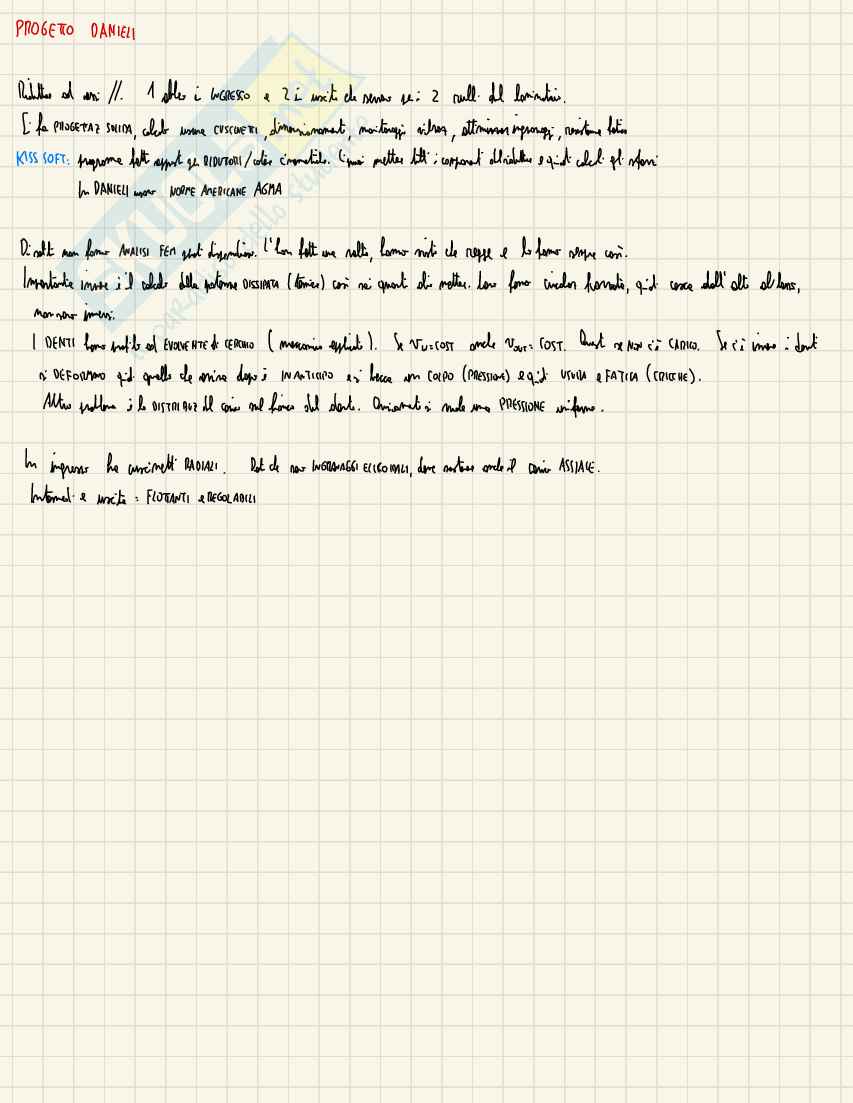 PROGETTO DANIELI
Riduttore ad assi //. 1 albero i INGRESSO e 2 i uscite che servono per i 2 rulli del laminatoio.
E fa PROGETAZ SOLIDA, calcolo usura CUSCINETTI, dimensionamenti, monitoraggi vibraz, ottimizzaz ingranaggi, resistenza fatica
KISS SOFT: programma fatt apposta per RIDUTORI/catene cinematiche. Ci puoi mettere tutti i componenti del riduttore e quindi calcoli gli sforzi
In DANIELI usano NORME AMERICANE AGMA
Di solito non fanno ANALISI FEM perché dispendiosa. L'han fatto una volta, hanno visto che regge e lo fanno sempre così.
Importante invece è il calcolo della potenza DISSIPATA (termica) così sai quanto olio mettere. Loro fanno circolaz forzata, quindi casca dall'alto al basso,
non sono immersi.
I DENTI hanno profilo ad EVOLVENTE di CERCHIO (meccanica applicata). Se VIN=COST anche VOUT=COST. Questo se NON c'è CARICO. Se c'è invece i denti
si DEFORMANO quindi quello che arriva dopo è IN ANTICIPO e si becca un COLPO (PRESSIONE) e quindi USURA e FATICA (CRICCHE).
Altro problema è la DISTRIBUZ del carico sul fianco del dente. Ovviamente si vuole una PRESSIONE uniforme.
In ingresso ha cuscinetti RADIALI. Dato che sono INGRANAGGI ELICOIDALI, deve sostenere anche il carico ASSIALE.
Intermedi e uscite: FLOTTANTI e REGOLABILI